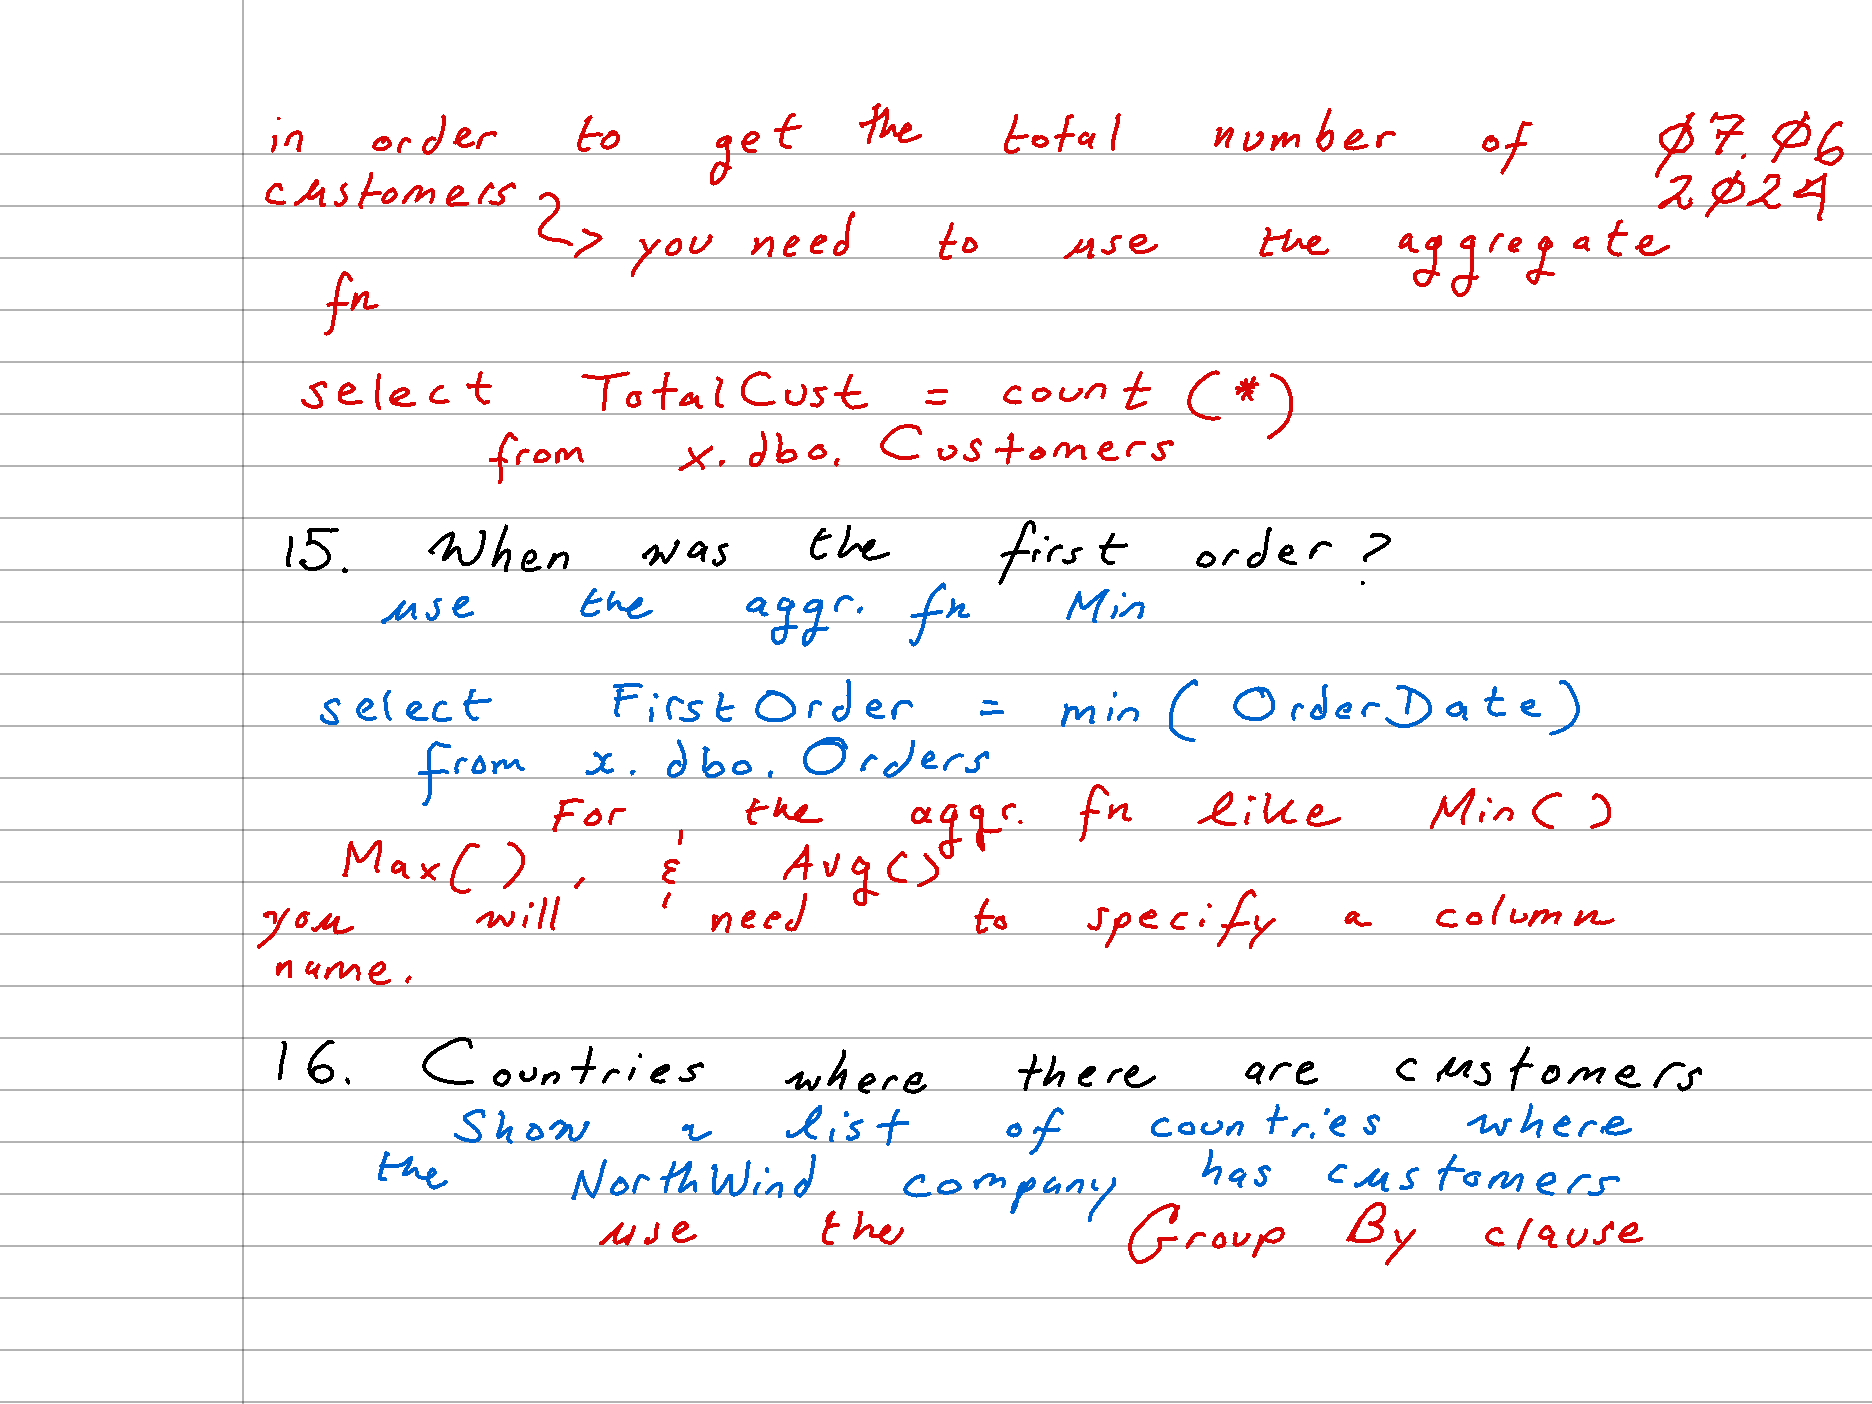 in order to get the total number of 07.06
customers 2024
you need to use the aggregate
fn
select TotalCust = count (*)
from x.dbo.Customers
15. When was the first order?
use the aggr. fn Min
select FirstOrder = min(OrderDate)
from x.dbo.Orders
For the aggr. fn like Min()
Max(), & Avg()
you will need to specify a column
name.
16. Countries where there are customers
Show a list of countries where
the NorthWind company has customers
use the Group By clause